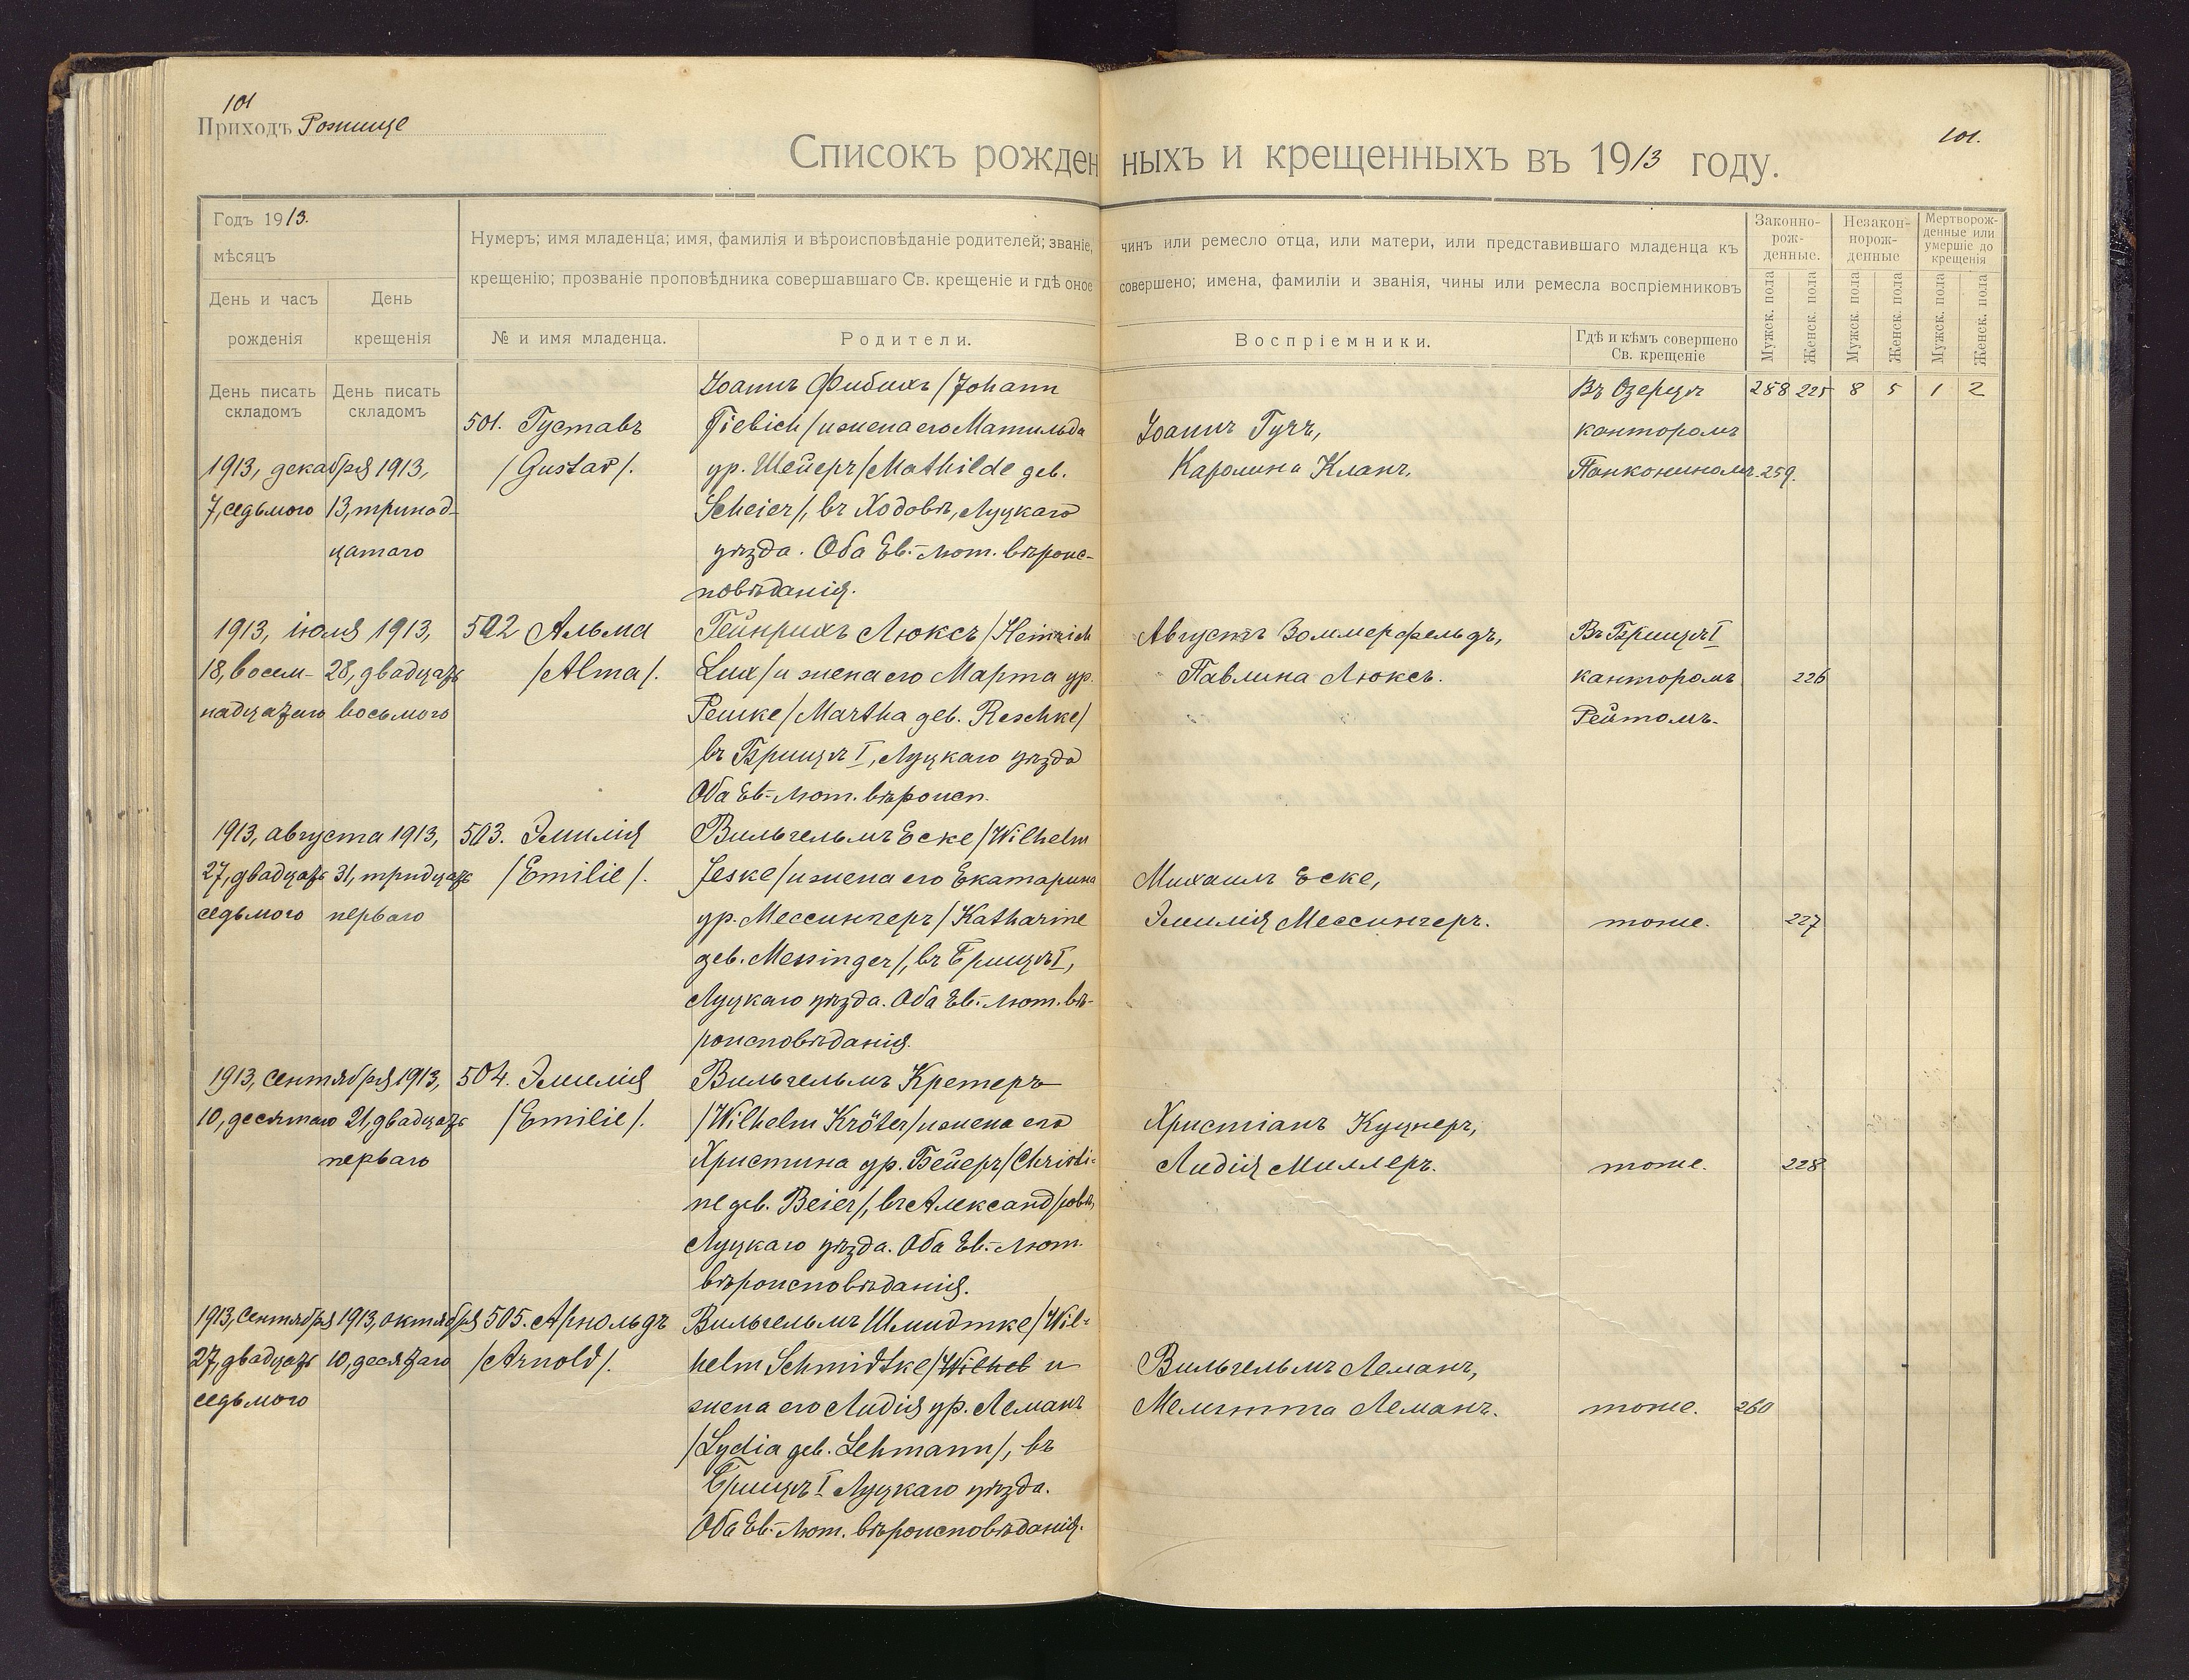 101
Приходъ Рожище
101.
Списокъ рожденныхъ и крещенныхъ въ 1913 году.
Годъ 1913.
мѣсяцъ
День и часъ
рожденія
День
крещенія
Нумеръ; имя младенца; имя, фамилія и вѣроисповѣданіе родителей; званіе, чинъ или ремесло отца, или матери, или представившаго младенца къ
крещенію; прозваніе проповѣдника совершавшаго Св. крещеніе и гдѣ оное совершено; имена, фамиліи и званія, чины или ремесла воспріемниковъ
№ и имя младенца.
Родители.
Воспріемники.
Гдѣ и кѣмъ совершено
Св. крещеніе
Законно-
рож-
денные.
Незакон-
порож-
денные
Мертворож-
денные или
умершіе до
крещенія
Мужск. пола
Женск. пола
Мужск. пола
Женск. пола
Мужск. пола
Женск. пола
День писать
складомъ
День писать
складомъ
258 225 8 5 1 2
1913, декабря 1913,
7, седьмого
13, тринад-
цатаго
501. Густавъ
/Gustav/.
Іоаннъ Фибихъ /Johann
Fiebich/ и жена его Матильда
ур. Шейеръ /Mathilde geb.
Scheier/, въ Ходовѣ, Луцкаго
уѣзда. Оба Ев.-лют. вѣроис-
повѣданія.
Іоаннъ Гучъ,
Каролина Кланъ.
Въ Озерцѣ
канторомъ
Панкониномъ.
259.
1913, іюля 1913,
18, восем-
надцатаго
28, двадцать
восьмого
502 Альма
/Alma/.
Гейнрихъ Люксъ /Heinrich
Lux/ и жена его Марта ур.
Решке /Martha geb. Reschke/
въ Брищѣ I, Луцкаго уѣзда
Оба Ев.-лют. вѣроисп.
Августъ Зоммерфельдъ,
Павлина Люксъ.
Въ Брищѣ I
канторомъ
Рейтомъ.
226
1913, августа 1913,
27, двадцать
седьмого
31, тридцать
перваго
503. Эмилія
/Emilie/.
Вильгельмъ Еске /Wilhelm
Jeske/ и жена его Екатарина
ур. Мессингеръ /Katharine
geb. Messinger/, въ Брищѣ I,
Луцкаго уѣзда. Оба Ев.-лют. вѣ-
роисповѣданія.
Михаилъ Еске,
Эмилія Мессингеръ.
тоже.
227
1913, сентября 1913,
10, десятаго
21, двадцать
перваго
504. Эмилія
/Emilie/.
Вильгельмъ Кретеръ
/Wilhelm Kröter/ и жена его
Христина ур. Бейеръ /Christi-
ne geb. Beier/, въ Александровѣ,
Луцкаго уѣзда. Оба Ев.-лют.
вѣроисповѣданія.
Христіанъ Куцнеръ,
Лидія Миллеръ.
тоже.
228
1913, сентября 1913, октября
27, двадцать
седьмого
10, десятаго
505. Арнольдъ
/Arnold/.
Вильгельмъ Шмидтке /Wil-
helm Schmidtke/ Wilhel и
жена его Лидія ур. Леманъ
/Lydia geb. Lehmann/, въ
Брищѣ I Луцкаго уѣзда.
Оба Ев.-лют. вѣроисповѣданія.
Вильгельмъ Леманъ,
Мелитта Леманъ.
тоже.
260